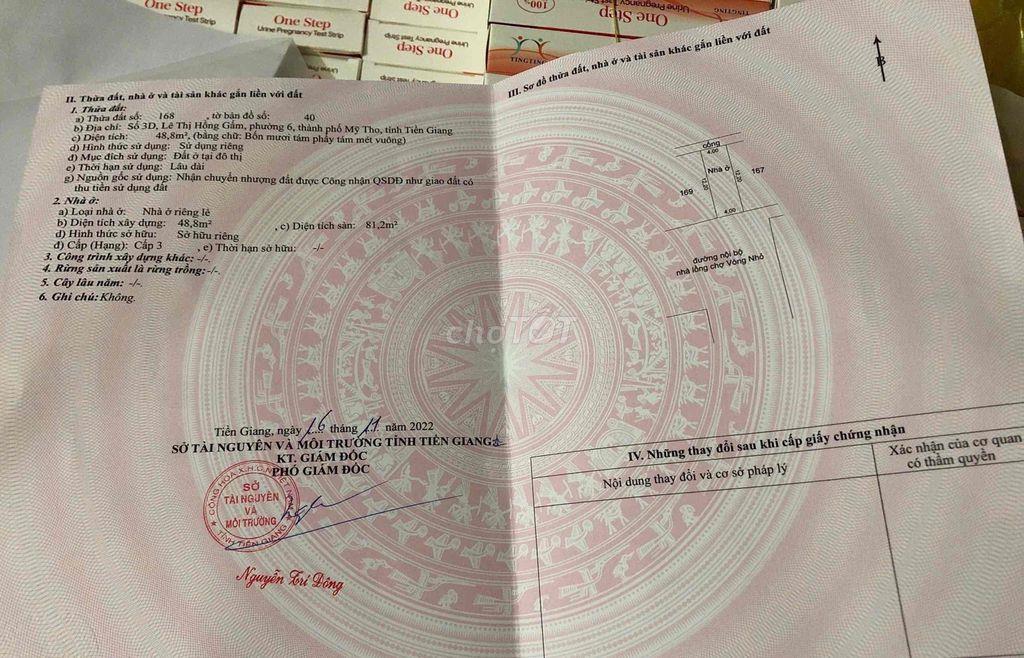 One Step
Urine Pregnancy Test Strip
One Step
Urine Pregnancy Test Strip
One Step
One Step
Urine Pregnancy Test Strip
One Step
Urine Pregnancy Test Strip
100
TINGTING
II. Thửa đất, nhà ở và tài sản khác gắn liền với đất
1. Thửa đất:
a) Thửa đất số: 168 , tờ bản đồ số: 40
b) Địa chỉ: Số 3D, Lê Thị Hồng Gấm, phường 6, thành phố Mỹ Tho, tỉnh Tiền Giang
c) Diện tích: 48,8m², (bằng chữ: Bốn mươi tám phẩy tám mét vuông)
d) Hình thức sử dụng: Sử dụng riêng
đ) Mục đích sử dụng: Đất ở tại đô thị
e) Thời hạn sử dụng: Lâu dài
g) Nguồn gốc sử dụng: Nhận chuyển nhượng đất được Công nhận QSDĐ như giao đất có
thu tiền sử dụng đất
2. Nhà ở:
a) Loại nhà ở: Nhà ở riêng lẻ
b) Diện tích xây dựng: 48,8m² , c) Diện tích sàn: 81,2m²
d) Hình thức sở hữu: Sở hữu riêng
đ) Cấp (Hạng): Cấp 3 , e) Thời hạn sở hữu: -/-
3. Công trình xây dựng khác: -/-.
4. Rừng sản xuất là rừng trồng:-/-.
5. Cây lâu năm: -/-.
6. Ghi chú: Không.
Tiền Giang, ngày 16 tháng 11 năm 2022
SỞ TÀI NGUYÊN VÀ MÔI TRƯỜNG TỈNH TIỀN GIANG
KT. GIÁM ĐỐC
PHÓ GIÁM ĐỐC
CỘNG HÒA X.H.C.N VIỆT NAM
SỞ
TÀI NGUYÊN
VÀ
MÔI TRƯỜNG
TỈNH TIỀN GIANG
Nguyễn Trí Dõng
III. Sơ đồ thửa đất, nhà ở và tài sản khác gắn liền với đất
B
cống
4.00
Nhà ở
169
12.20
12.20
167
4.00
đường nội bộ
nhà lồng chợ Vòng Nhỏ
chợTỐT
IV. Những thay đổi sau khi cấp giấy chứng nhận
Nội dung thay đổi và cơ sở pháp lý
Xác nhận của cơ quan
có thẩm quyền